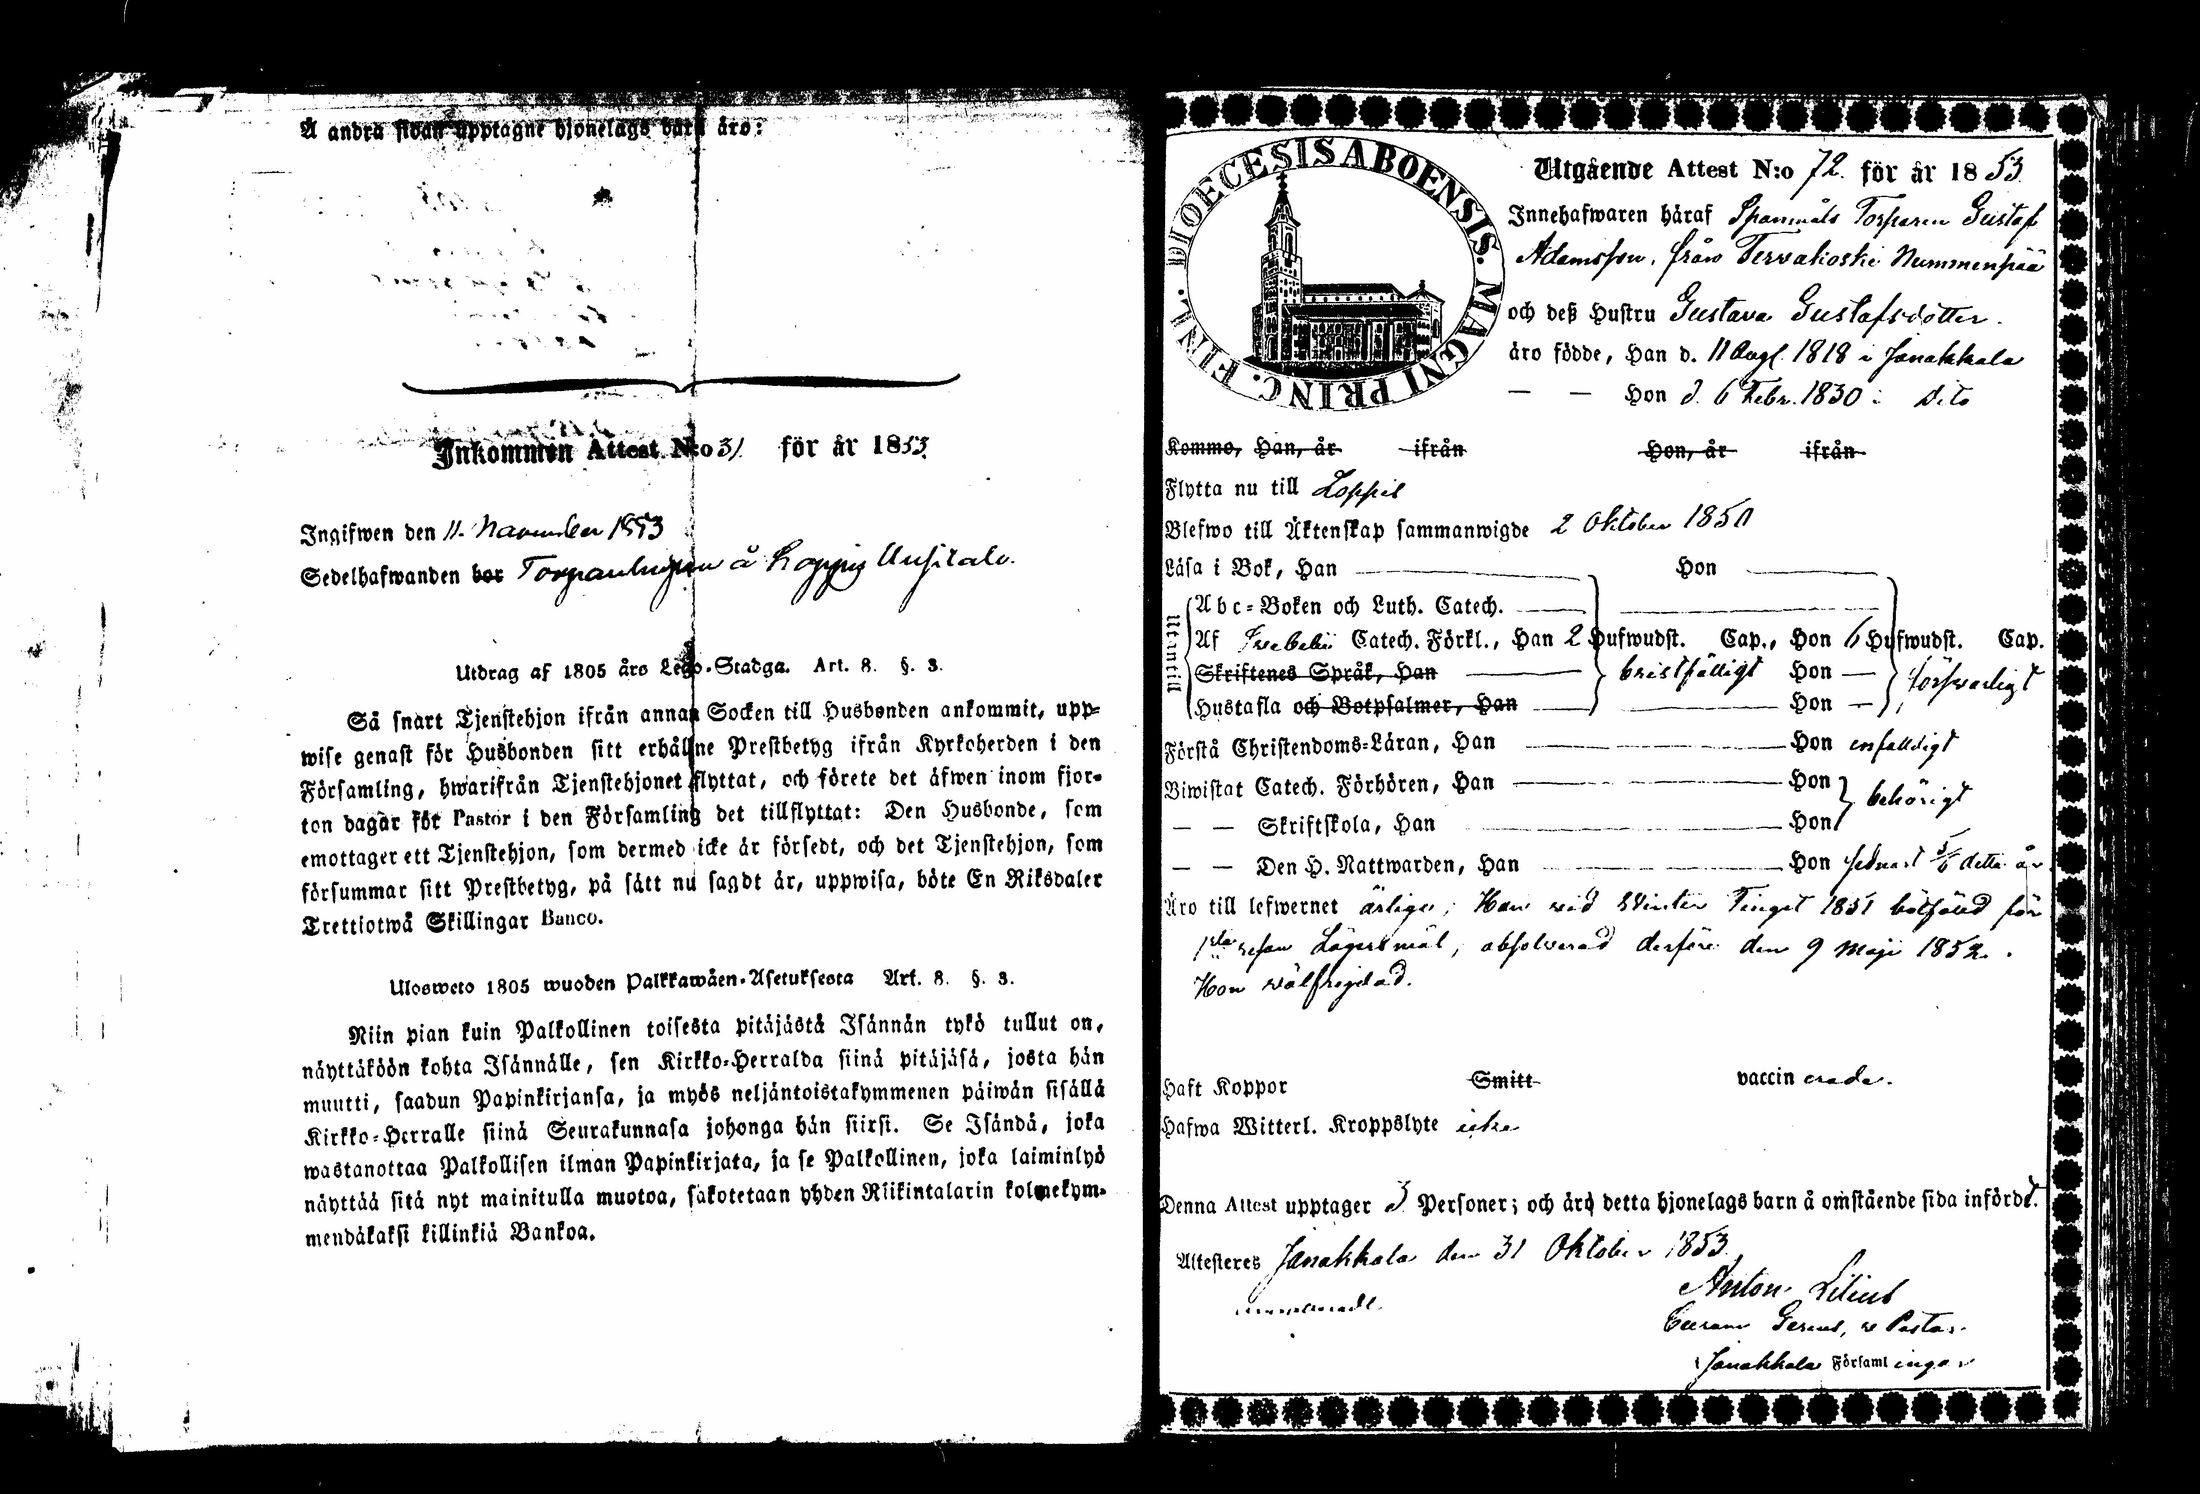 Å andra sidan upptagne hjonelags barn äro:
Inkommen Attest N:o 31 för år 1853.
Ingifwen den 11. November 1853
Sedelhafwanden bor å Loppis
Utdrag af 1805 års Lego-Stadga. Art. 8. §. 3.
Så snart Tjenstehjon ifrån annan Socken till Husbonden ankommit, upp-
wise genast för Husbonden sitt erhållne Prestbetyg ifrån Kyrkoherden i den
Församling, hwarifrån Tjenstehjonet flyttat, och förete det äfwen inom fjor-
ton dagar för Pastor i den Församling det tillflyttat: Den Husbonde, som
emottager ett Tjenstehjon, som dermed icke är försedt, och det Tjenstehjon, som
försummar sitt Prestbetyg, på sätt nu sagdt är, uppwisa, böte En Riksdaler
Trettiotwå Skillingar Banco.
Ulosweto 1805 wuoden Palkkawäen-Asetuksesta Art. 8. §. 3.
Niin pian kuin Palkollinen toisesta pitäjästä Isännän tykö tullut on,
näyttäköön kohta Isännälle, sen Kirkko-Herralda siinä pitäjäsä, josta hän
muutti, saadun Papinkirjansa, ja myös neljäntoistakymmenen päiwän sisällä
Kirkko-Herralle siinä Seurakunnasa johonga hän siirsi. Se Isändä, joka
wastanottaa Palkollisen ilman Papinkirjata, ja se Palkollinen, joka laiminlyö
näyttää sitä nyt mainitulla muotoa, sakotetaan yhden Riikintalarin kolmekym-
mendäkaksi killinkiä Bankoa.
DIOECESIS ABOENSIS. MAGNI PRINC. FINL.
Utgående Attest N:o 72. för år 1853
Innehafwaren häraf Spanmåls Torparen Gustaf
Adamsson, från Terwakoski Nummenpää
och deß Hustru Gustava Gustafsdotter.
äro födde, Han d. 11 Aug. 1818 i Janakkala
— — Hon d. 6 Febr. 1830 i dito
Kommo, Han, år ifrån Hon, år ifrån
Flytta nu till Loppis
Blefwo till Äktenskap sammanwigde 2 Oktober 1850
Läsa i Bok, Han Hon
Utantill
Abc-Boken och Luth. Catech.
Af Swebelii Catech. Förkl., Han 2 Hufwudst. Cap., Hon 6 Hufwudst. Cap.
Skriftenes Språk, Han bristfälligt Hon — förswarligt
Hustafla och Botpsalmer, Han Hon —
Förstå Christendoms-Läran, Han Hon enfaldigt
Biwistat Catech. Förhören, Han Hon behörigt
— — Skriftskola, Han Hon
— — Den H. Nattwarden, Han Hon sednast 5/6 detta år
Äro till lefwernet ärlige; Han wid Winter Tinget 1851 bötfäld för
1sta resan Lägersmål, absolverad derföre den 9 Maji 1852.
Hon wälfrejdad.
Haft Koppor Smitt vaccinerade.
Hafwa Witterl. Kroppslyte icke
Denna Attest upptager 3 Personer; och äro detta hjonelags barn å omstående sida införde.
Attesteres Janakkala den 31 Oktober 1853.
Anton Lilius
Janakkala Församlingar